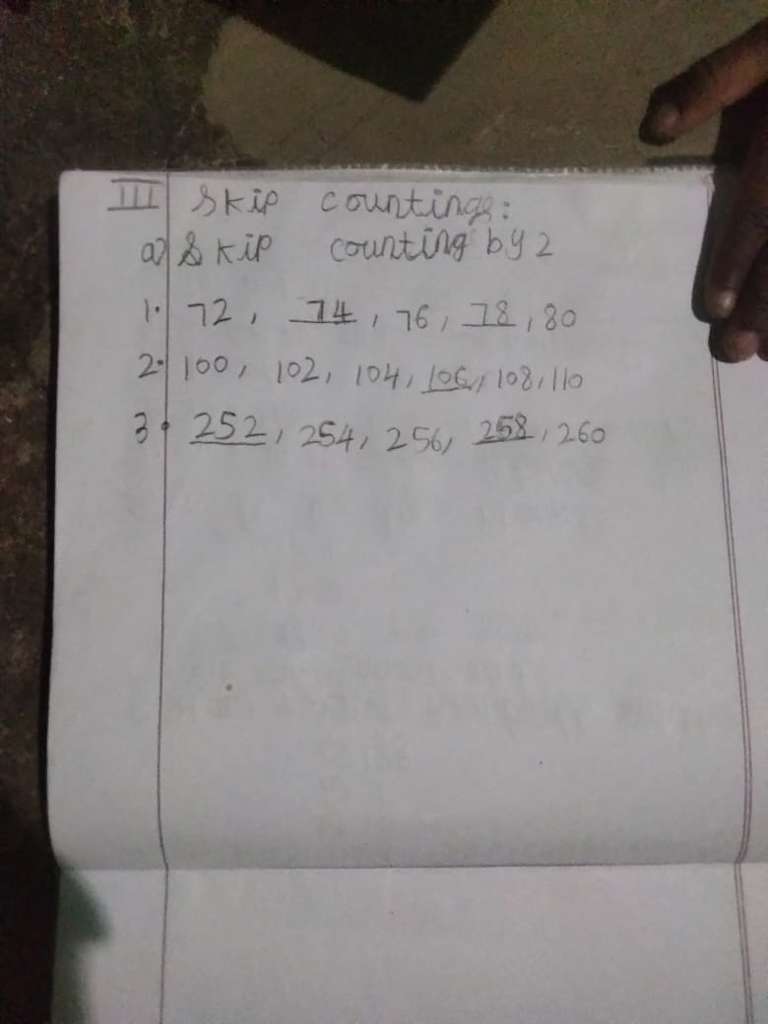 III Skip countings:
a) Skip counting by 2
1. 72, 74, 76, 78, 80
2. 100, 102, 104, 106, 108, 110
3. 252, 254, 256, 258, 260